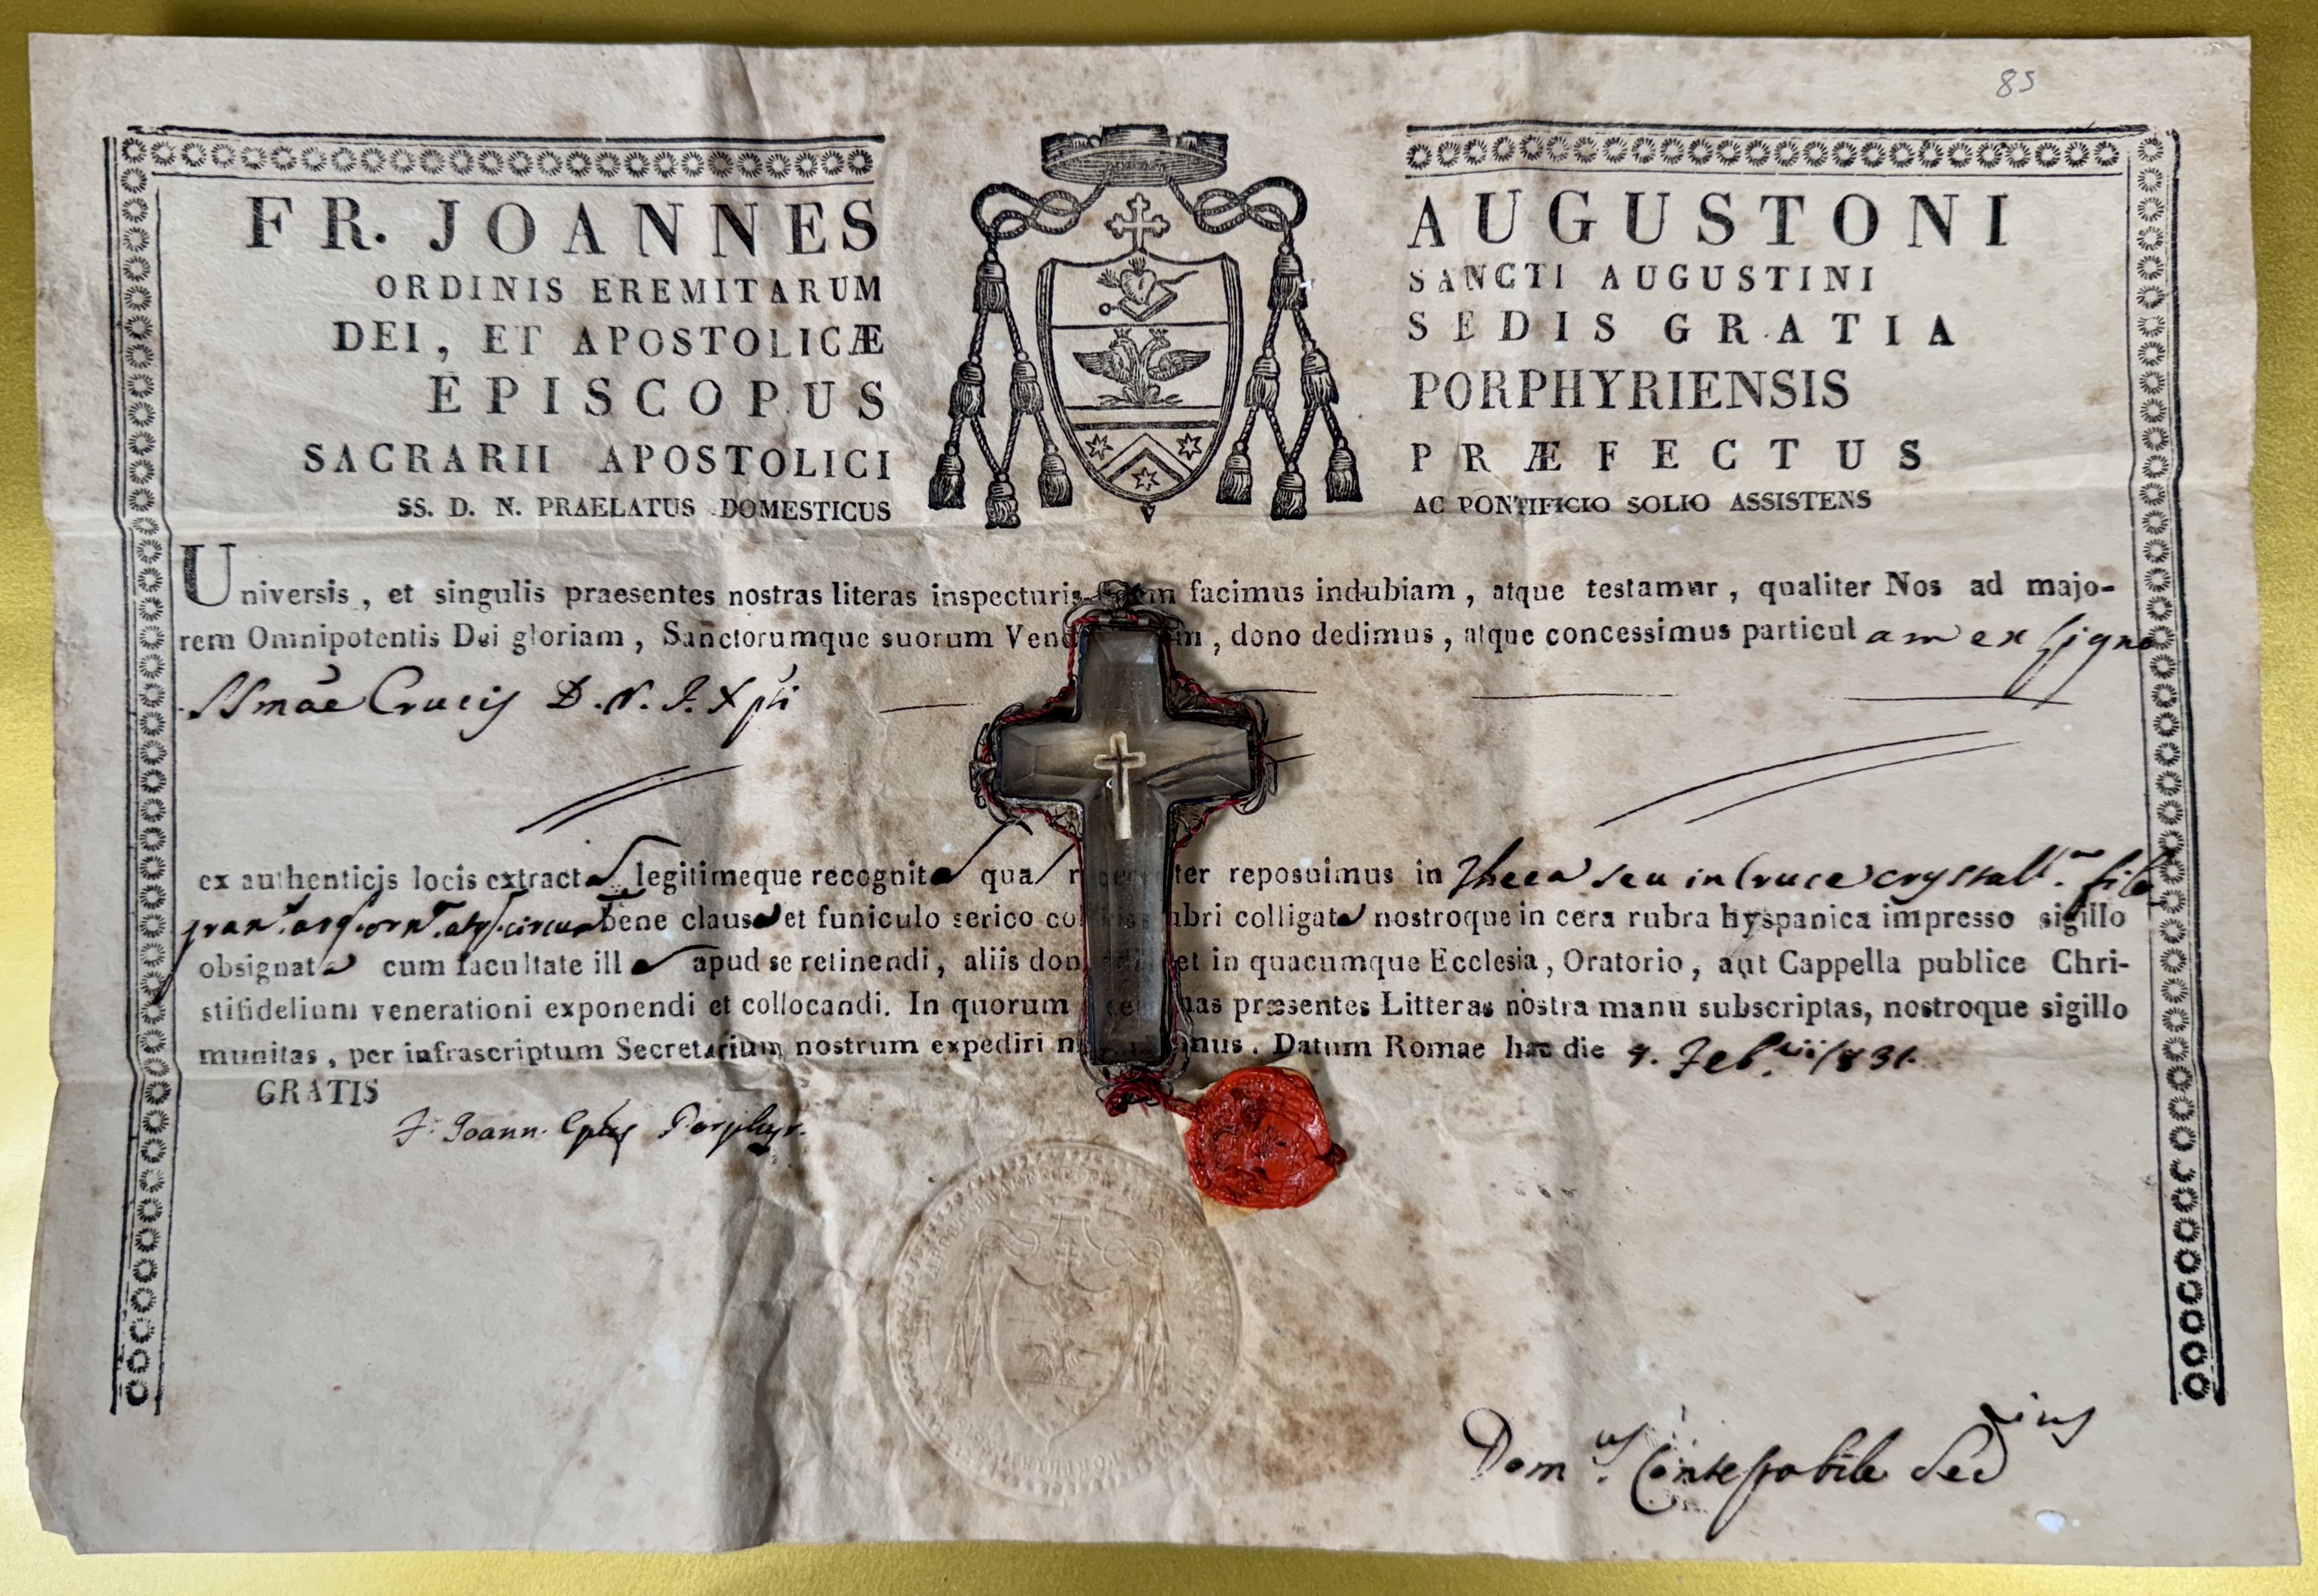 85
FR. JOANNES AUGUSTONI
ORDINIS EREMITARUM SANCTI AUGUSTINI
DEI, ET APOSTOLICÆ SEDIS GRATIA
EPISCOPUS PORPHYRIENSIS
SACRARII APOSTOLICI PRÆFECTUS
SS. D. N. PRAELATUS DOMESTICUS AC PONTIFICIO SOLIO ASSISTENS
Universis, et singulis praesentes nostras literas inspecturis facimus indubiam, atque testamur, qualiter Nos ad majo-
rem Omnipotentis Dei gloriam, Sanctorumque suorum , dono dedimus, atque concessimus particulam ex Ligno
SSmae Crucis D. N. J. Xpti
ex authenticis locis extracta legitimeque recognita qua reposuimus in Theca seu in Cruce crystall.
bene clausa et funiculo serico colligata nostroque in cera rubra hyspanica impresso sigillo
obsignata cum facultate illa apud se retinendi, aliis et in quacumque Ecclesia, Oratorio, aut Cappella publice Chri-
stifidelium venerationi exponendi et collocandi. In quorum præsentes Litteras nostra manu subscriptas, nostroque sigillo
munitas, per infrascriptum Secretarium nostrum expediri . Datum Romae hac die Feb. 1831.
GRATIS
F. Joann. Epus Porphyr.
Domus. Contestabile Sec